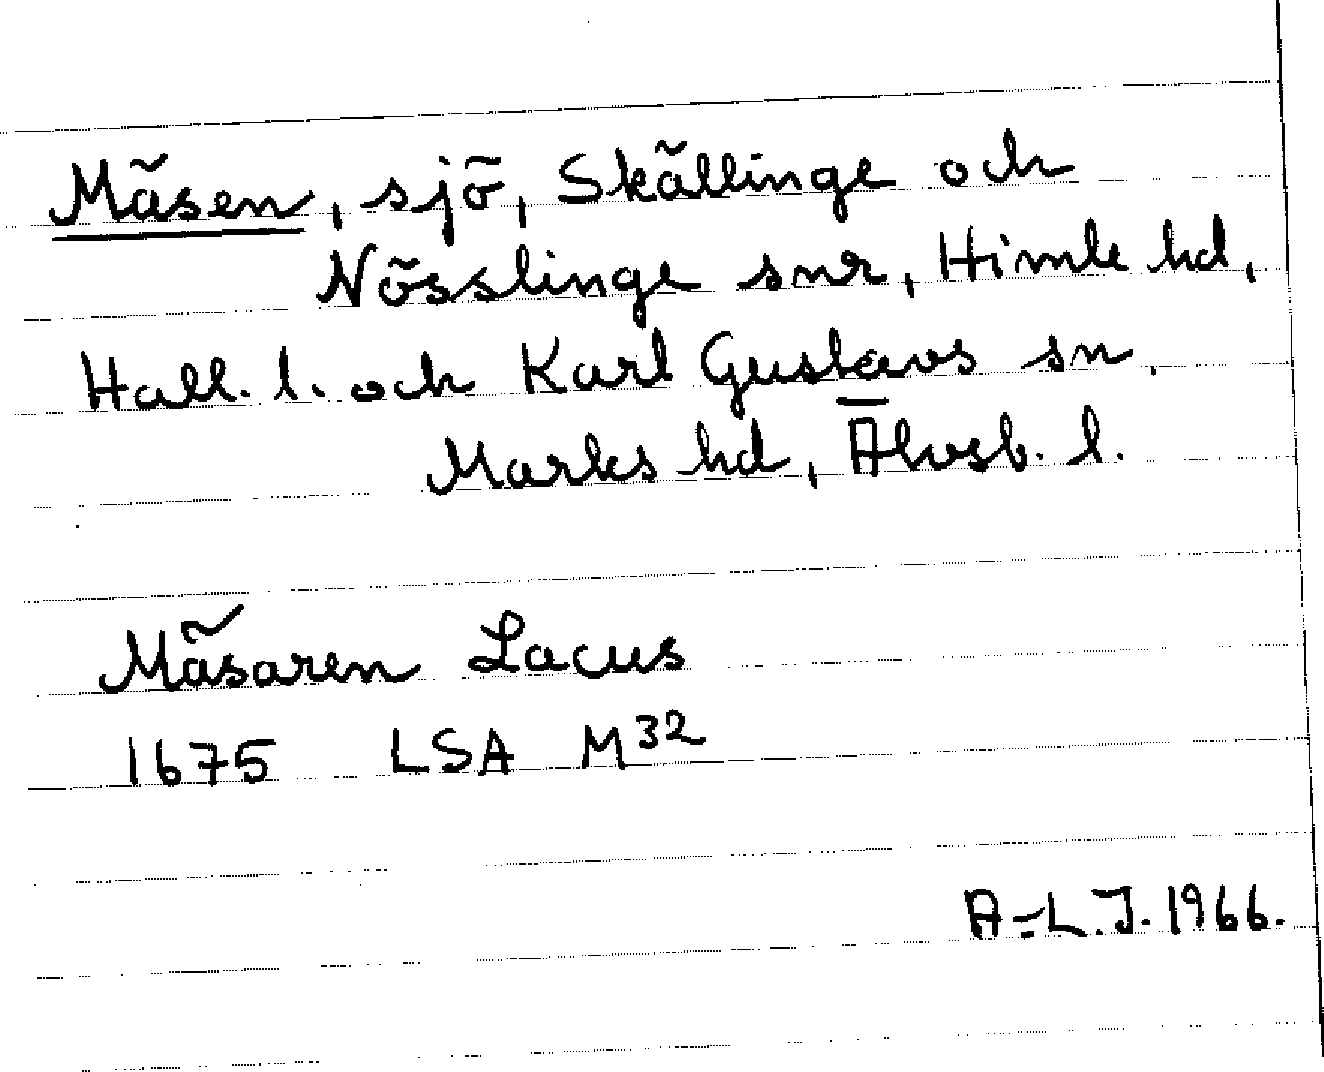 Mäsen, sjö, Skällinge och
Nösslinge snr, Himle hd,
Hall. l. och Karl Gustavs sn,
Marks hd, Älvsb. l.
Mäsaren Lacus
1675 LSA M32
A-L.J. 1966.